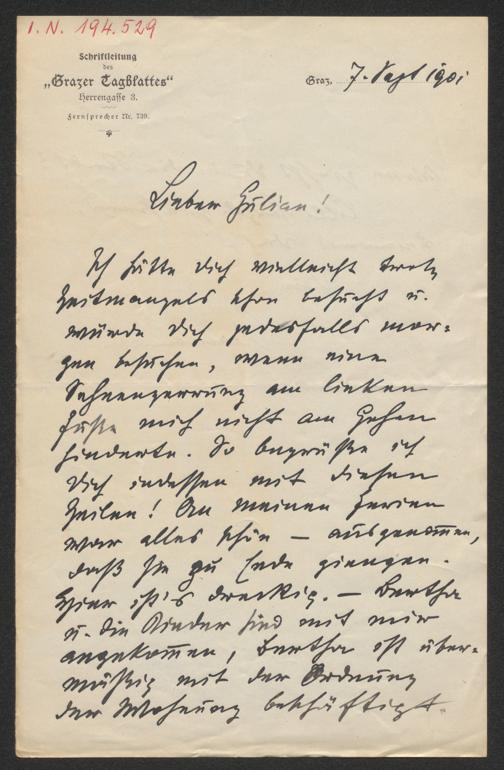 I. N. 194.529
Schriftleitung
des
„Grazer Tagblattes“
Herrengasse 3.
Fernsprecher Nr. 739.
Graz, 7. Sept 1901
Lieber Gulian!
Ich hätte dich vielleicht trotz
Zeitmangels schon besucht u.
würde dich jedesfalls mor-
gen besuchen, wenn eine
Sehnenzerrung am linken
Fuße mich nicht am Gehen
hinderte. So begrüße ich
dich indessen mit diesen
Zeilen! An meinen Ferien
war alles schön — ausgenom̅en,
daß sie zu Ende giengen.
Hier ist's dreckig. — Bertha
u. die Kinder sind mit mir
angekom̅en, Bertha ist über-
mäßig mit der Ordnung
der Wohnung beschäftigt.